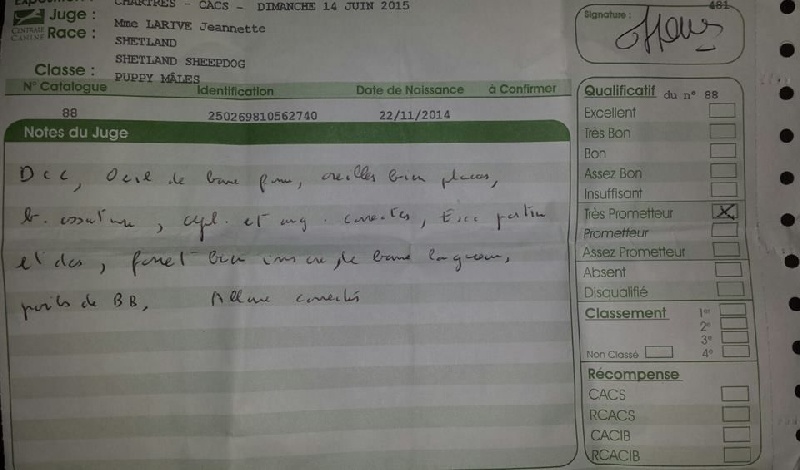 CHARTRES - CACS - DIMANCHE 14 JUIN 2015
Juge : Mme LARIVE Jeannette
Race : SHETLAND
SHETLAND SHEEPDOG
Classe : PUPPY MÂLES
CENTRALE CANINE
N° Catalogue Identification Date de Naissance à Confirmer
88 250269810562740 22/11/2014
Notes du Juge
Dcc, Oeil de bonne forme, oreilles bien placées,
b. ossature, et ang. correctes,
et dos, fouet bien de bonne longueur,
poils de BB, Allure correctes
Signature :
481
Qualificatif du n° 88
Excellent
Très Bon
Bon
Assez Bon
Insuffisant
Très Prometteur X
Prometteur
Assez Prometteur
Absent
Disqualifié
Classement 1er
2e
3e
Non Classé 4e
Récompense
CACS
RCACS
CACIB
RCACIB